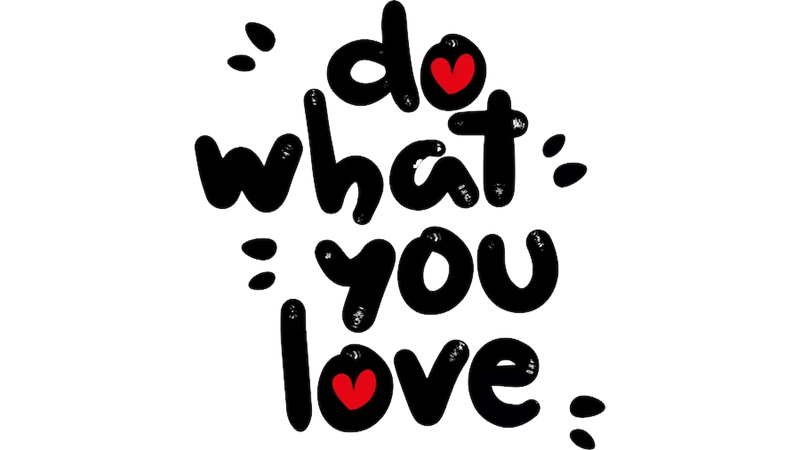 do
what
you
love